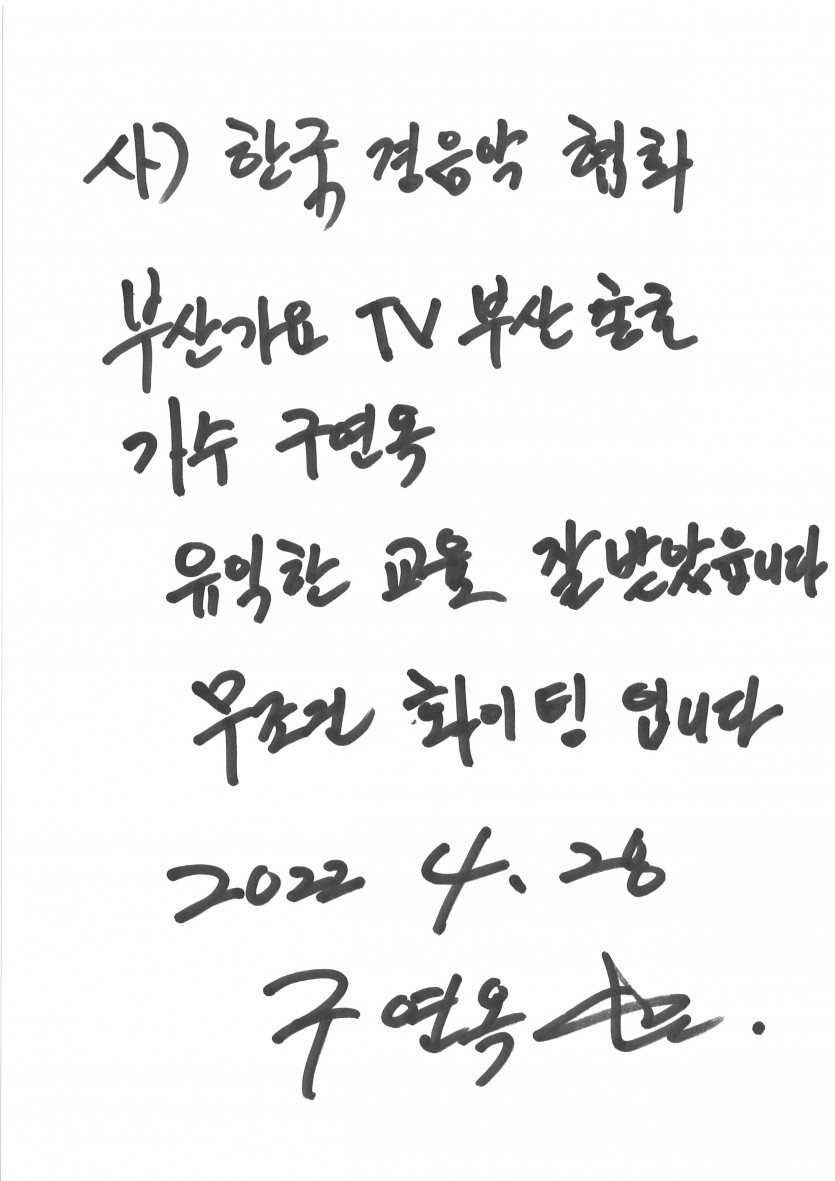 사) 한국 경음악 협회
부산가요 TV 부산 총국
가수 구연옥
유익한 교육 잘 받았읍니다
무조건 화이팅 입니다
2022 4. 28
구연옥